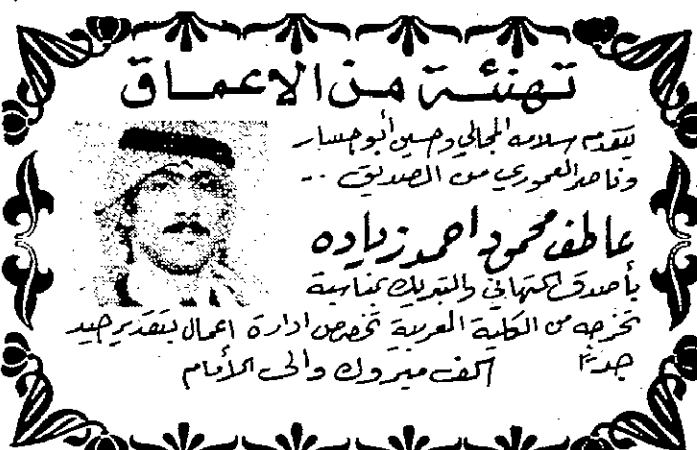 تهنئة من الاعماق
يتقدم سلامه المجالي وحسين أبو جسار
وناصر العموري من الصديق ..
عاطف محمود احمد زياده
بأصدق التهاني والتبريك بمناسبة
تخرجه من الكلية العربية تخصص ادارة اعمال بتقدير جيد
جدا
الف مبروك والى الأمام